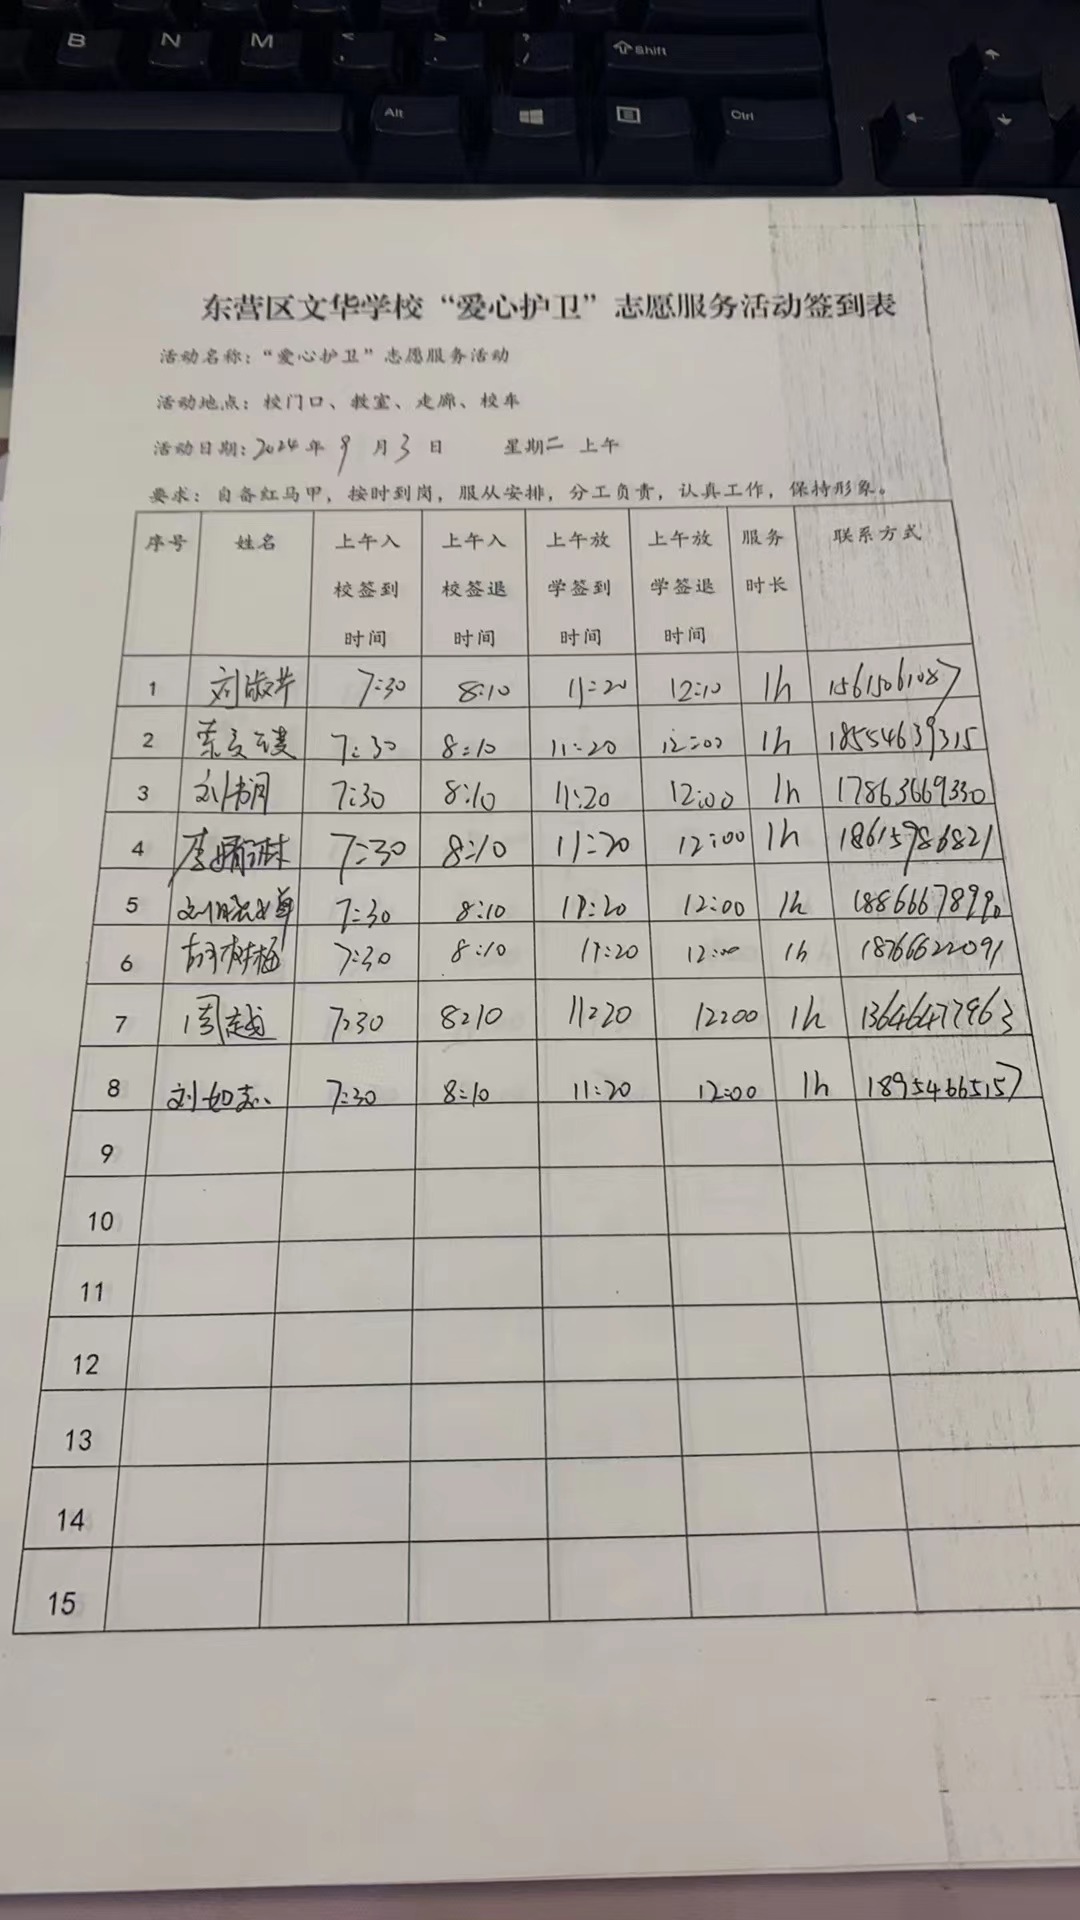 B N M < > ? / Shift
Alt Ctrl
东营区文华学校“爱心护卫”志愿服务活动签到表
活动名称：“爱心护卫”志愿服务活动
活动地点：校门口、教室、走廊、校车
活动日期：2024年9月3日 星期二 上午
要求：自备红马甲，按时到岗，服从安排，分工负责，认真工作，保持形象。
序号 姓名 上午入校签到时间 上午入校签退时间 上午放学签到时间 上午放学签退时间 服务时长 联系方式
1 刘淑芹 7:30 8:10 11:20 12:10 1h 15615061087
2 7:30 8:10 11:20 12:00 1h 18554639315
3 刘书月 7:30 8:10 11:20 12:00 1h 17863669330
4 7:30 8:10 11:20 12:00 1h 18615786821
5 7:30 8:10 11:20 12:00 1h 18866678990
6 胡树梅 7:30 8:10 11:20 12:00 1h 18766622091
7 周越 7:30 8:10 11:20 12:00 1h 13646477963
8 刘如志 7:30 8:10 11:20 12:00 1h 18954665157
9
10
11
12
13
14
15